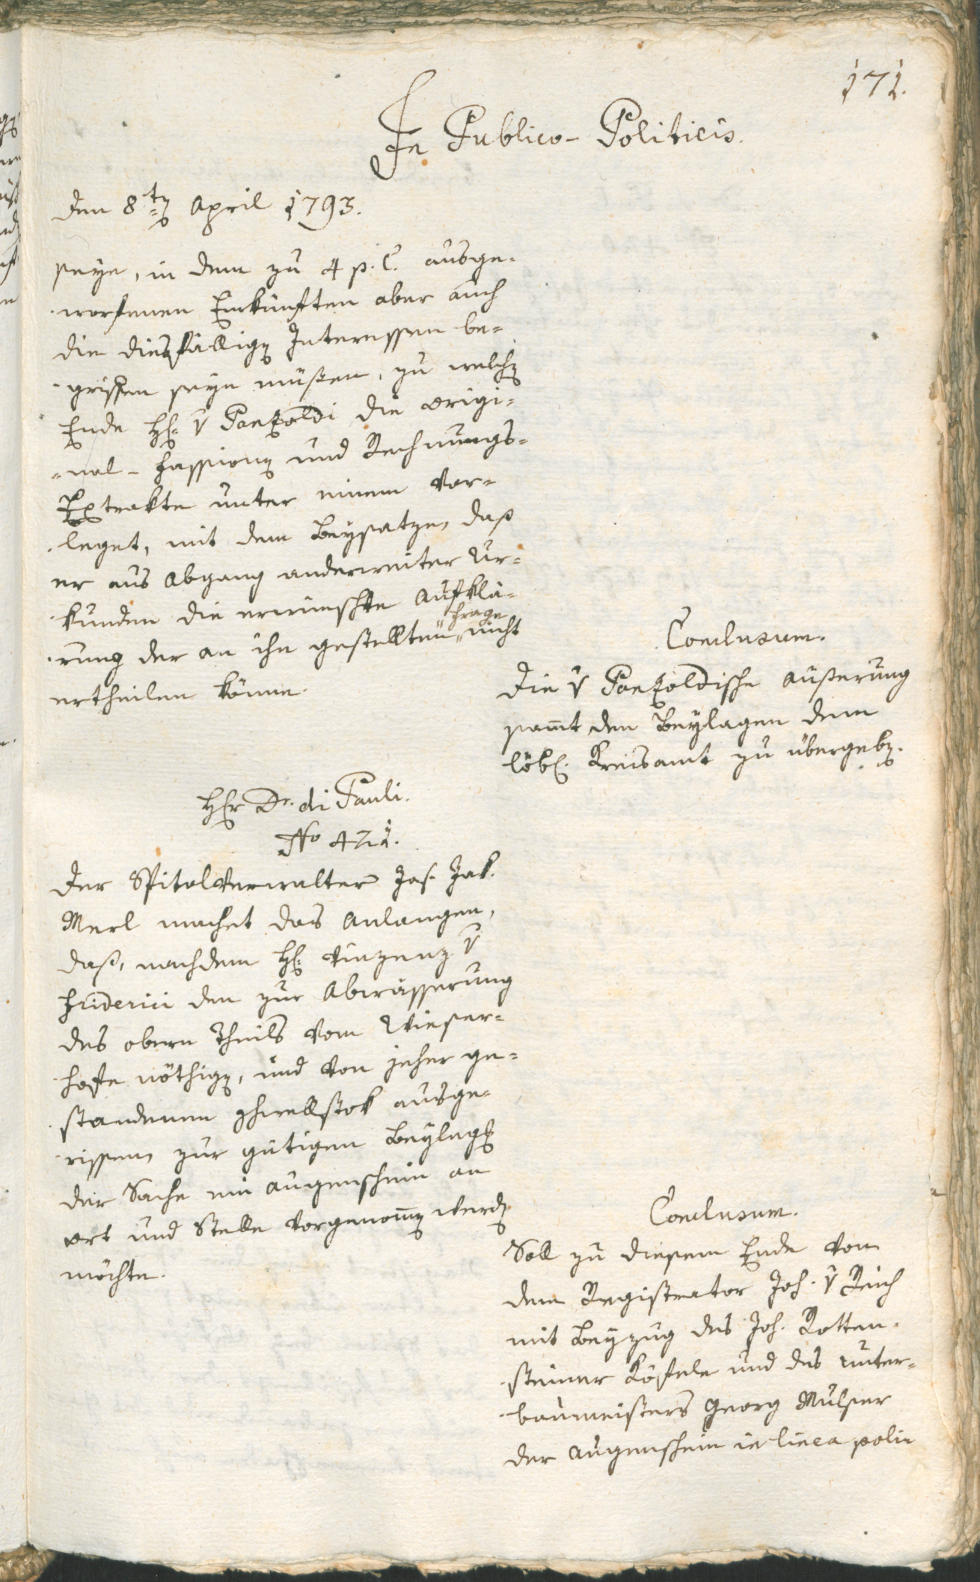 171.
In Publico-Politicis.
den 8ten April 1793.
seye, in dem zu 4 p. C. ausge-
worfenen Einkünften aber auch
die diesfälligen Interessen be-
griffen seyn müßen, zu welchem
Ende H: v Panzoldi die origi-
nal-Fassionen und Rechnungs-
Extrakte unter einem vor-
leget, mit dem Beysatze, daß
er aus Abgang anderweiter Ur-
kunden die erwünschte Aufklä-
rung der an ihn gestellten Frage nicht
ertheilen könne.
Conclusum.
Die v Panzoldische Äußerung
sam̅t den Beylagen dem
löbl. Kreisamt zu übergeben.
Hr Dr. di Pauli.
No 471.
Der Spitalverwalter Jos. Jak.
Merl machet das Anlangen,
daß, nachdem H: Vinzenz v
Friderici den zur Abwässerung
des obern Theils vom Wieser-
hofe nöthigen, und von jeher ge-
standenen Schwellstok ausge-
rissen, zur gütigen Beylage
der Sache ein Augenschein an
Ort und Stelle vorgenom̅en werden
möchte.
Conclusum.
Soll zu diesem Ende vom
dem Registrator Joh. v Reich
mit Beyzug des Joh. Rotten-
steiner Köfele und des Unter-
baumeisters Georg Mulser
der Augenschein in linea poli-